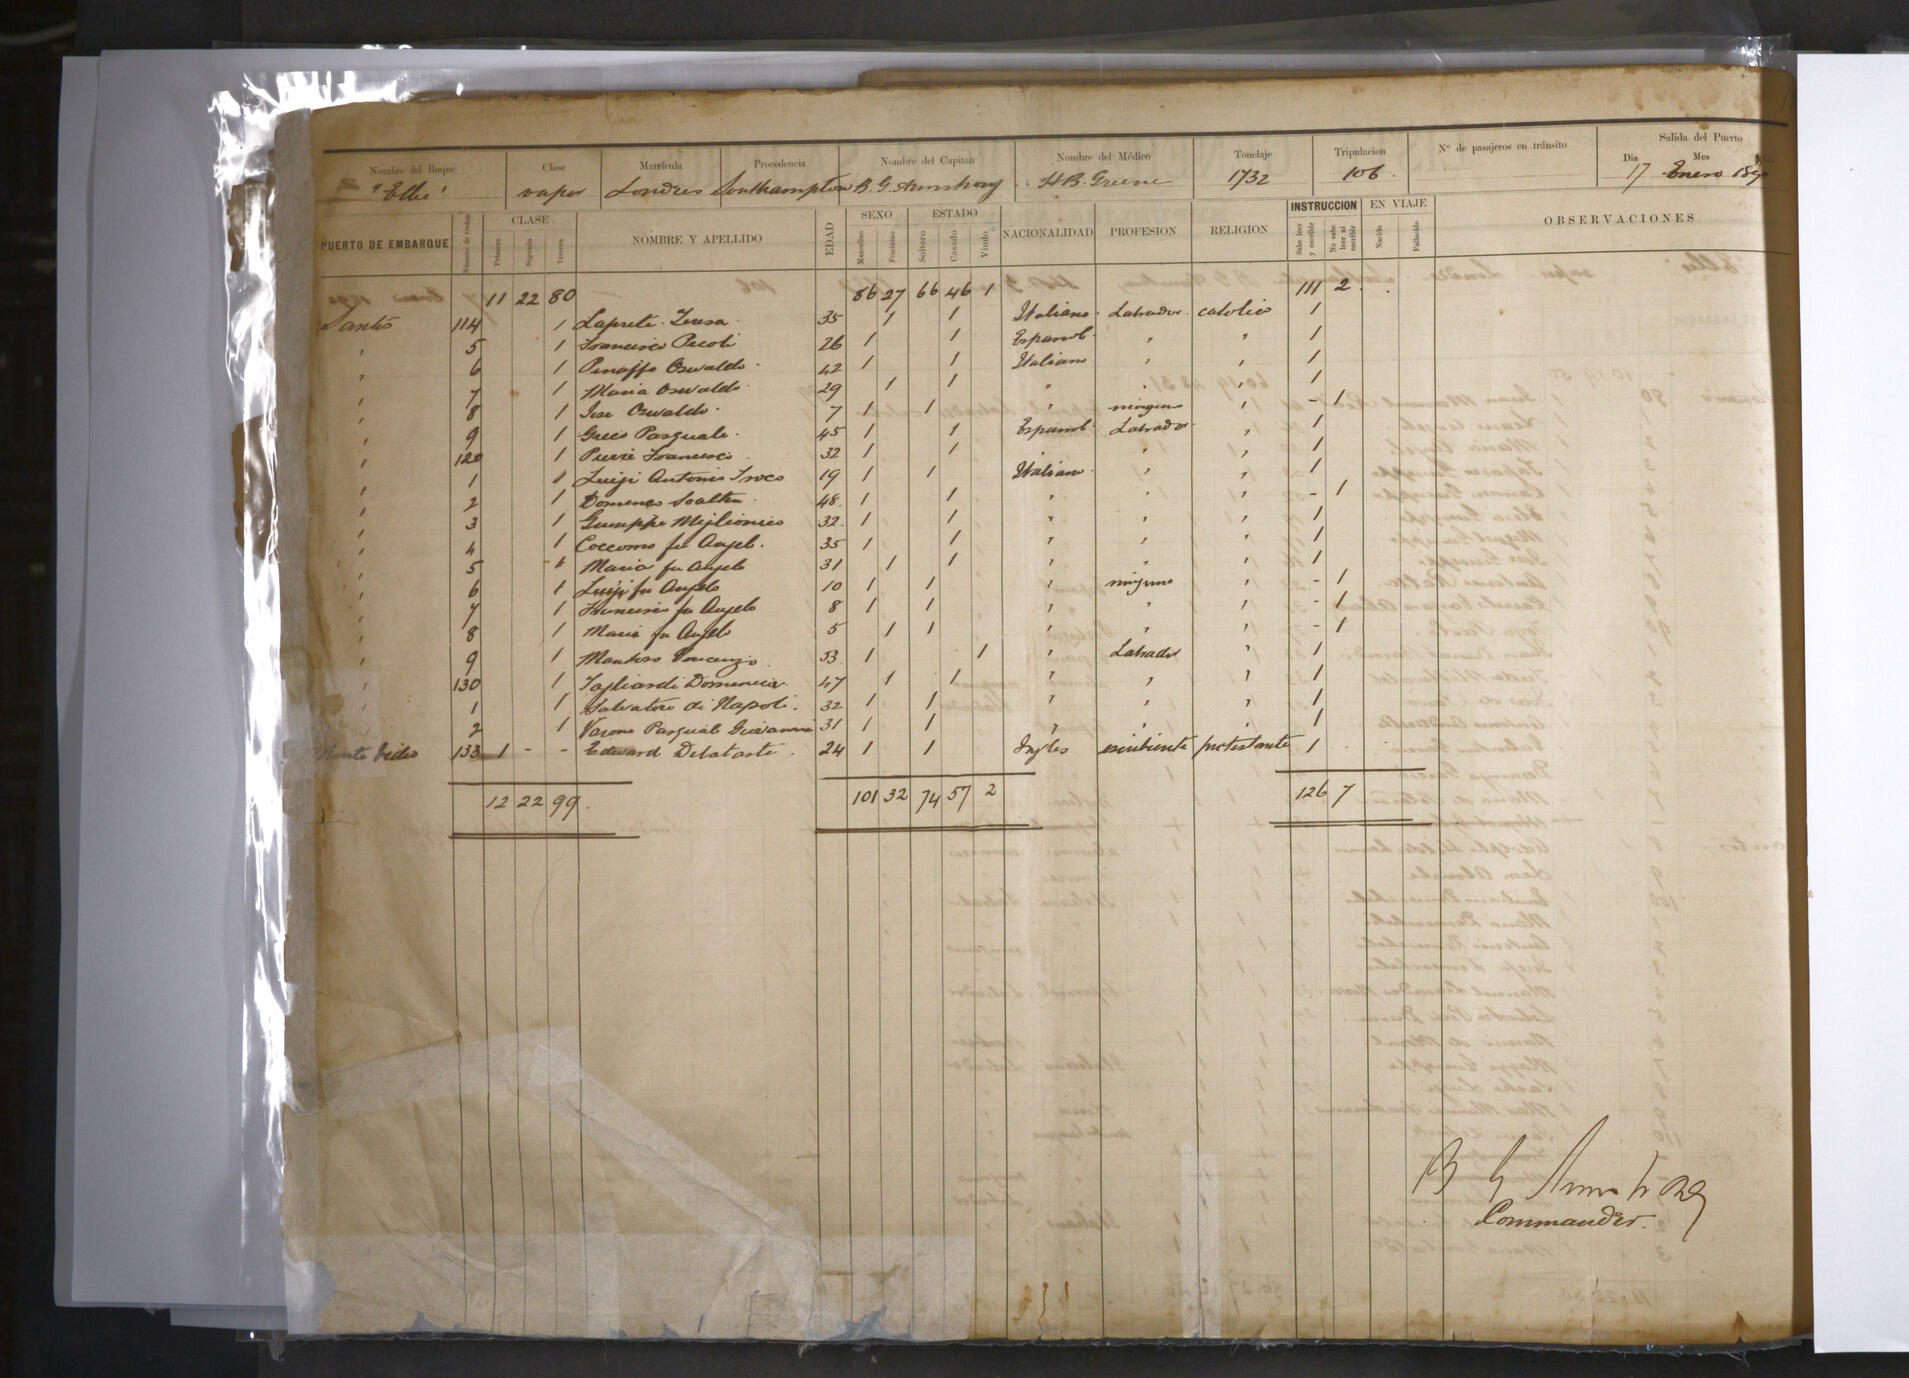 Nombre del Buque Clase Matrícula Procedencia Nombre del Capitan Nombre del Médico Tonelaje Tripulacion Nº de pasajeros en tránsito Salida del Puerto
Dia Mes
"Elbe" vapor Londres Southampton B. G. Armstrong H B. Greene 1732 106 17 Enero 1890
PUERTO DE EMBARQUE Número de Orden CLASE NOMBRE Y APELLIDO EDAD SEXO ESTADO NACIONALIDAD PROFESION RELIGION INSTRUCCION EN VIAJE OBSERVACIONES
Primera Segunda Tercera Masculino Feminino Soltero Casado Viudo Sabe leer y escribir No sabe leer ni escribir Nacido Fallecido
11 22 80 86 27 66 46 1 111 2
Santos 114 1 Laprete Teresa 35 1 1 Italiano Labrador catolico 1
" 5 1 Francisco Picoli 26 1 1 Español " " 1
" 6 1 Pinaffo Oswaldo 42 1 1 Italiano " " 1
" 7 1 Maria Oswaldo 29 1 1 " " " 1
" 8 1 Jose Oswaldo 7 1 1 " ninguno " - 1
" 9 1 Greco Pasquale 45 1 1 Español Labrador " 1
" 120 1 Francesco 32 1 1 " " " 1
" 1 1 Luigi Antonio 19 1 1 Italiano " " 1
" 2 1 Domenco 48 1 1 " " " - 1
" 3 1 Giuseppe Miglionico 32 1 1 " " " 1
" 4 1 Coccomo fu Angelo 35 1 1 " " " 1
" 5 1 Maria fu Angelo 31 1 1 " " " 1
" 6 1 Luigi fu Angelo 10 1 1 " ninguno " - 1
" 7 1 Francisco fu Angelo 8 1 1 " " " - 1
" 8 1 Maria fu Angelo 5 1 1 " " " - 1
" 9 1 Vincenzo 53 1 1 " Labrador " 1
" 130 1 Tagliardi Domenica 47 1 1 " " " 1
" 1 1 Salvatore di Napoli 32 1 1 " " " 1
" 2 1 Varone Pasquale Giovanni 31 1 1 " " " 1
Monte Video 133 1 - - Edward Delataste 24 1 1 Ingles escribiente protestante 1
12 22 99 101 32 74 57 2 126 7
B G Armstrong
Commander.